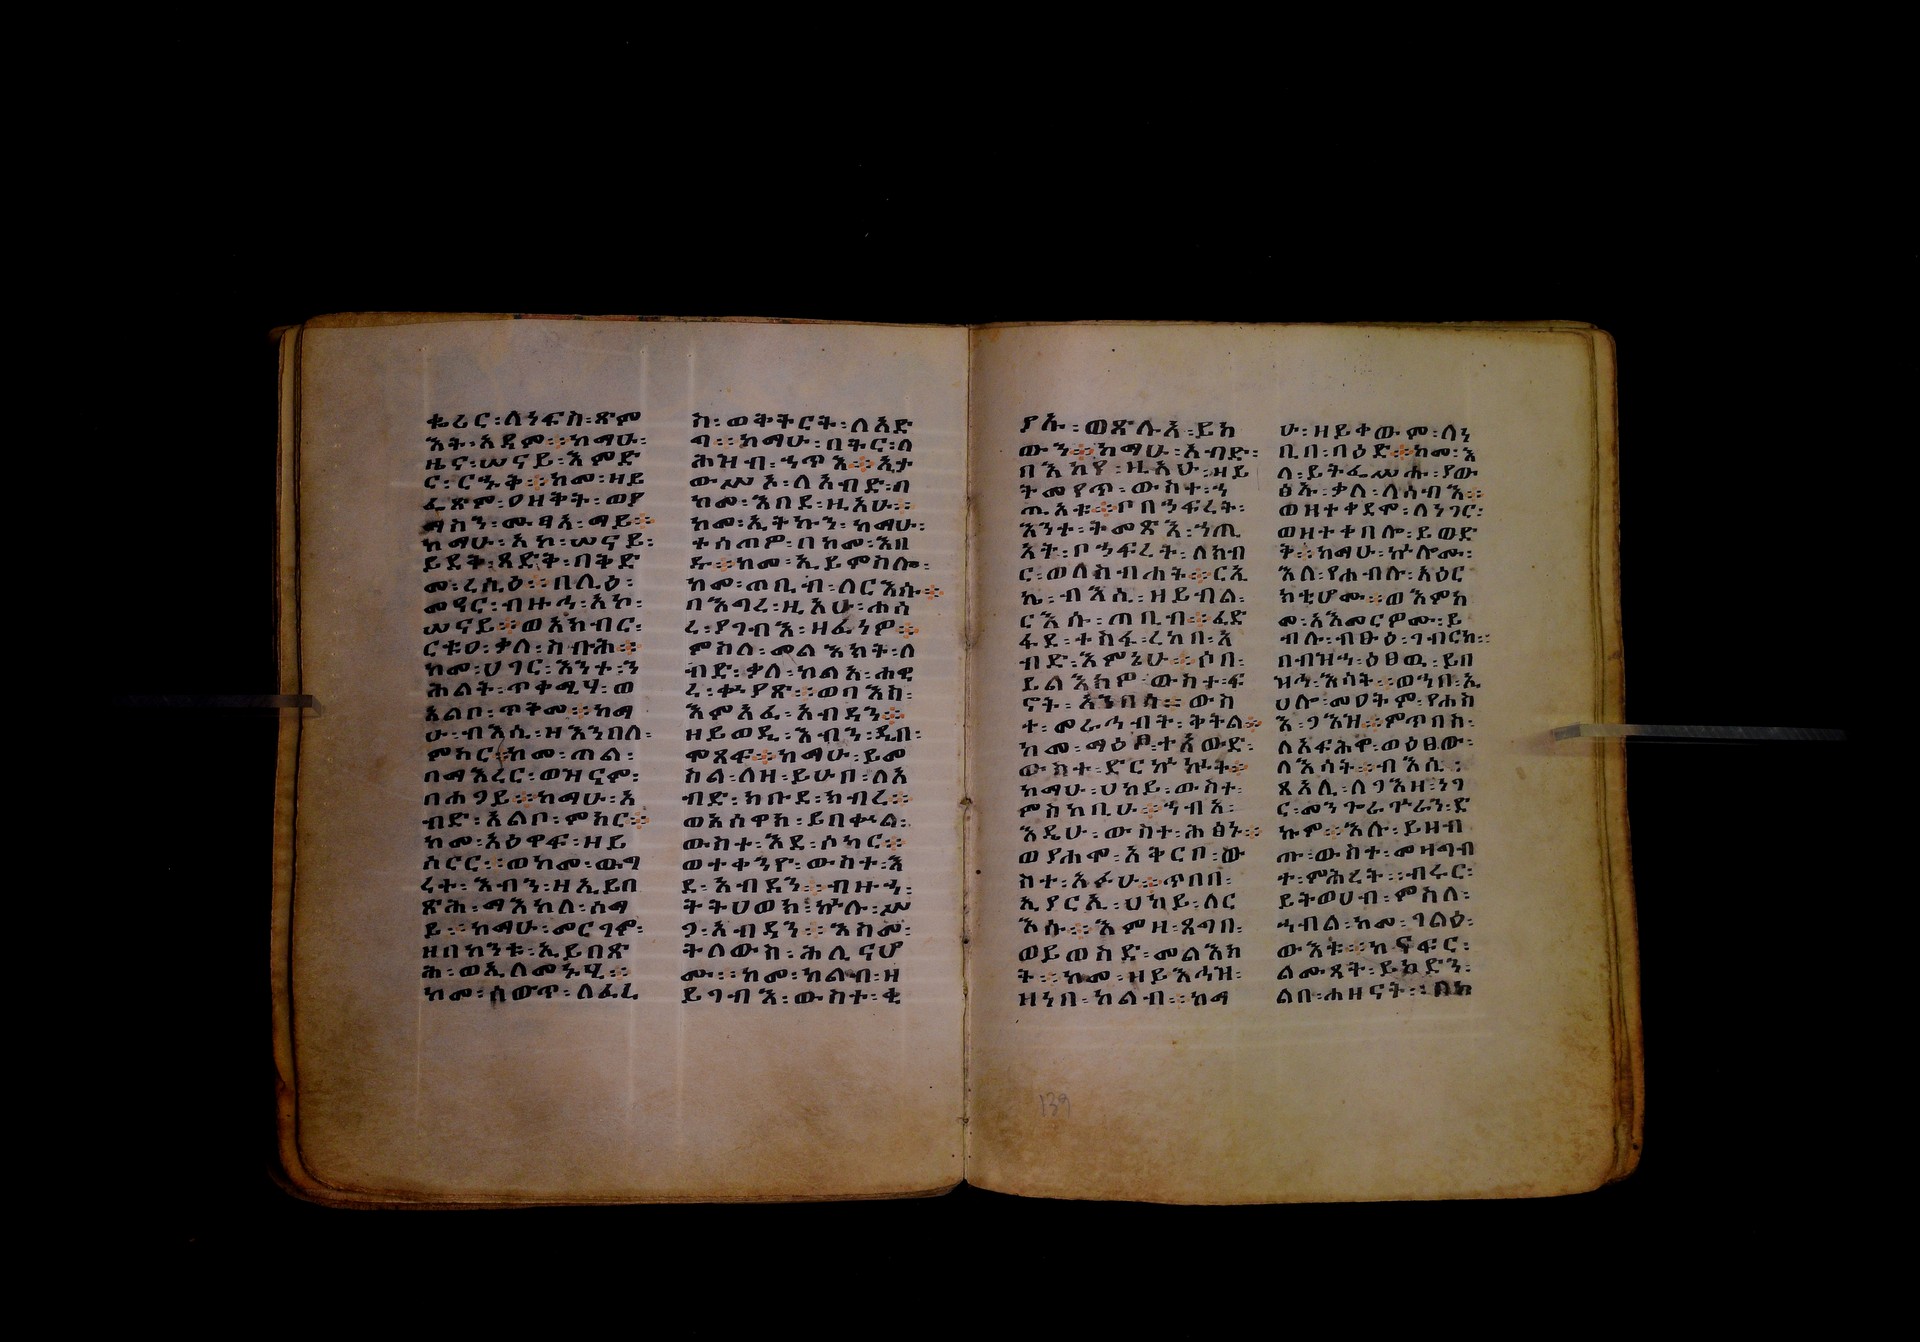 ቈሪር፡ለነፍስ፡ጽም
እት፡አዳም፡፡ከማሁ፡
ዜና፡ሠናይ፡እምድ
ር፡ርኁቅ፡፡ከመ፡ዘይ
ፈጽም፡ዐዘቅት፡ወያ
ማስን፡ሙፃአ፡ማይ፡፡
ከማሁ፡አኮ፡ሠናይ፡
ይደቅ፡ጻድቅ፡በቅድ
መ፡ረሲዕ፡፡በሊዕ፡
መዓር፡ብዙኅ፡አኮ፡
ሠናይ፡፡ወአክብር፡
ርቱዐ፡ቃለ፡ስቡሕ፡፡
ከመ፡ሀገር፡እንተ፡ን
ሕልት፡ጥቅሚሃ፡ወ
አልቦ፡ጥቅመ፡፡ከማ
ሁ፡ብእሲ፡ዘእንበለ፡
ምክር፡ከመ፡ጠል፡
በማእረር፡ወዝናም፡
በሐጋይ፡፡ከማሁ፡አ
ብድ፡አልቦ፡ምክር፡፡
ከመ፡አዕዋፍ፡ዘይ
ሰርር፡፡ወከመ፡ውግ
ረት፡እብን፡ዘኢይበ
ጽሕ፡ማእከለ፡ሰማ
ይ፡፡ከማሁ፡መርገም፡
ዘበከንቱ፡ኢይበጽ
ሕ፡ወኢለመኑሂ፡፡
ከመ፡ሰውጥ፡ለፈረ
ስ፡ወቅትርት፡ለአድ
ግ፡፡ከማሁ፡በትር፡ለ
ሕዝብ፡ኃጥእ፡፡ኢታ
ውሥእ፡ለአብድ፡በ
ከመ፡እበደ፡ዚአሁ፡፡
ከመ፡ኢትኩን፡ከማሁ፡
ተሰጠዎ፡በከመ፡እበ
ዱ፡፡ከመ፡ኢይምስሎ፡
ከመ፡ጠቢብ፡ለርእሱ፡፡
በእግረ፡ዚአሁ፡ሐሰ
ረ፡ያገብእ፡ዘፈነዎ፡፡
ምስለ፡መልእክት፡ለ
ብድ፡ቃለ፡ከልአ፡ሐዊ
ረ፡ቍያጽ፡፡ወባእስ፡
እምአፈ፡አብዳን፡፡
ዘይወዲ፡እብን፡ዲበ፡
ሞጸፍ፡፡ከማሁ፡ይመ
ስል፡ለዘ፡ይሁብ፡ለአ
ብድ፡ክቡደ፡ክብረ፡፡
ወአሰዋክ፡ይበቍል፡
ውስተ፡እደ፡ሶካር፡፡
ወተቀንዮ፡ውስተ፡እ
ደ፡አብዳን፡፡ብዙኅ፡
ትትሀወክ፡ኵሉ፡ሥ
ጋ፡አብዳን፡፡እስመ፡
ትለውስ፡ሕሊናሆ
ሙ፡፡ከመ፡ከልብ፡ዘ
ይገብእ፡ውስተ፡ቂ
ያኡ፡ወጽሉአ፡ይከ
ውን፡፡ከማሁ፡አብድ፡
በእከየ፡ዚአሁ፡ዘይ
ትመየጥ፡ውስተ፡ኃ
ጢአቱ፡፡ቦበኃፍረት፡
እንተ፡ትመጽእ፡ኀጢ
አት፡ቦኃፍረት፡ለክብ
ር፡ወለስብሐት፡፡ርኢ
ኬ፡ብእሲ፡ዘይብል፡
ርእሱ፡ጠቢብ፡፡ፈድ
ፋደ፡ተስፋ፡ረከበ፡አ
ብድ፡እምኔሁ፡፡ሶበ፡
ይልእክዎ፡ውስተ፡ፍ
ኖት፡አንበሳ፡፡ውስ
ተ፡መራኅብት፡ቅትል፡፡
ከመ፡ማዕፆ፡ተአውድ፡
ውስተ፡ድርኵኵት፡፡
ከማሁ፡ሀከይ፡ውስተ፡
ምስካቢሁ፡፡ኀብአ፡
እዲሁ፡ውስተ፡ሕፅኑ፡፡
ወያሐሞ፡አቅርቦ፡ው
ስተ፡አፉሁ፡፡ጥበበ፡
ኢያርኢ፡ሀከይ፡ለር
እሱ፡፡እምዘ፡ጸግበ፡
ወይወስድ፡መልእክ
ት፡፡ከመ፡ዘይእኅዝ፡
ዝነበ፡ከልብ፡፡ከማ
ሁ፡ዘይቀውም፡ለነ
ቢበ፡በዕድ፡፡ከመ፡እ
ለ፡ይትፌሥሑ፡ያው
ፅኡ፡ቃለ፡ለሰብእ፡፡
ወዘተቀደሞ፡ለነገር፡
ወዘተቀበሎ፡ይወድ
ቅ፡፡ከማሁ፡ኵሎሙ፡
እለ፡የሐብሉ፡አዕር
ክቲሆሙ፡፡ወእምከ
መ፡አእመርዎሙ፡ይ
ብሉ፡ብፁዕ፡ገብርከ፡፡
በብዝኀ፡ዕፀዉ፡ይበ
ዝኅ፡እሳት፡፡ወኀበ፡ኢ
ሀሎ፡መዐትም፡የሐስ
እ፡ጋእዝ፡፡ምጥበስ፡
ለአፍሕዋ፡ወዕፀው፡
ለእሳት፡፡ብእሲ፡
ጸአሊ፡ለጋእዘ፡ነገ
ር፡መንጐራጕራን፡ደ
ኩም፡፡እሉ፡ይዘብ
ጡ፡ውስተ፡መዛግብ
ተ፡ምሕረት፡፡ብሩር፡
ይትወሀብ፡ምስለ፡
ኀብል፡ከመ፡ገልዕ፡
ውእቱ፡፡ከናፍር፡
ልሙጻት፡ይከድን፡
ልበ፡ሐዘናት፡፡በከ
139